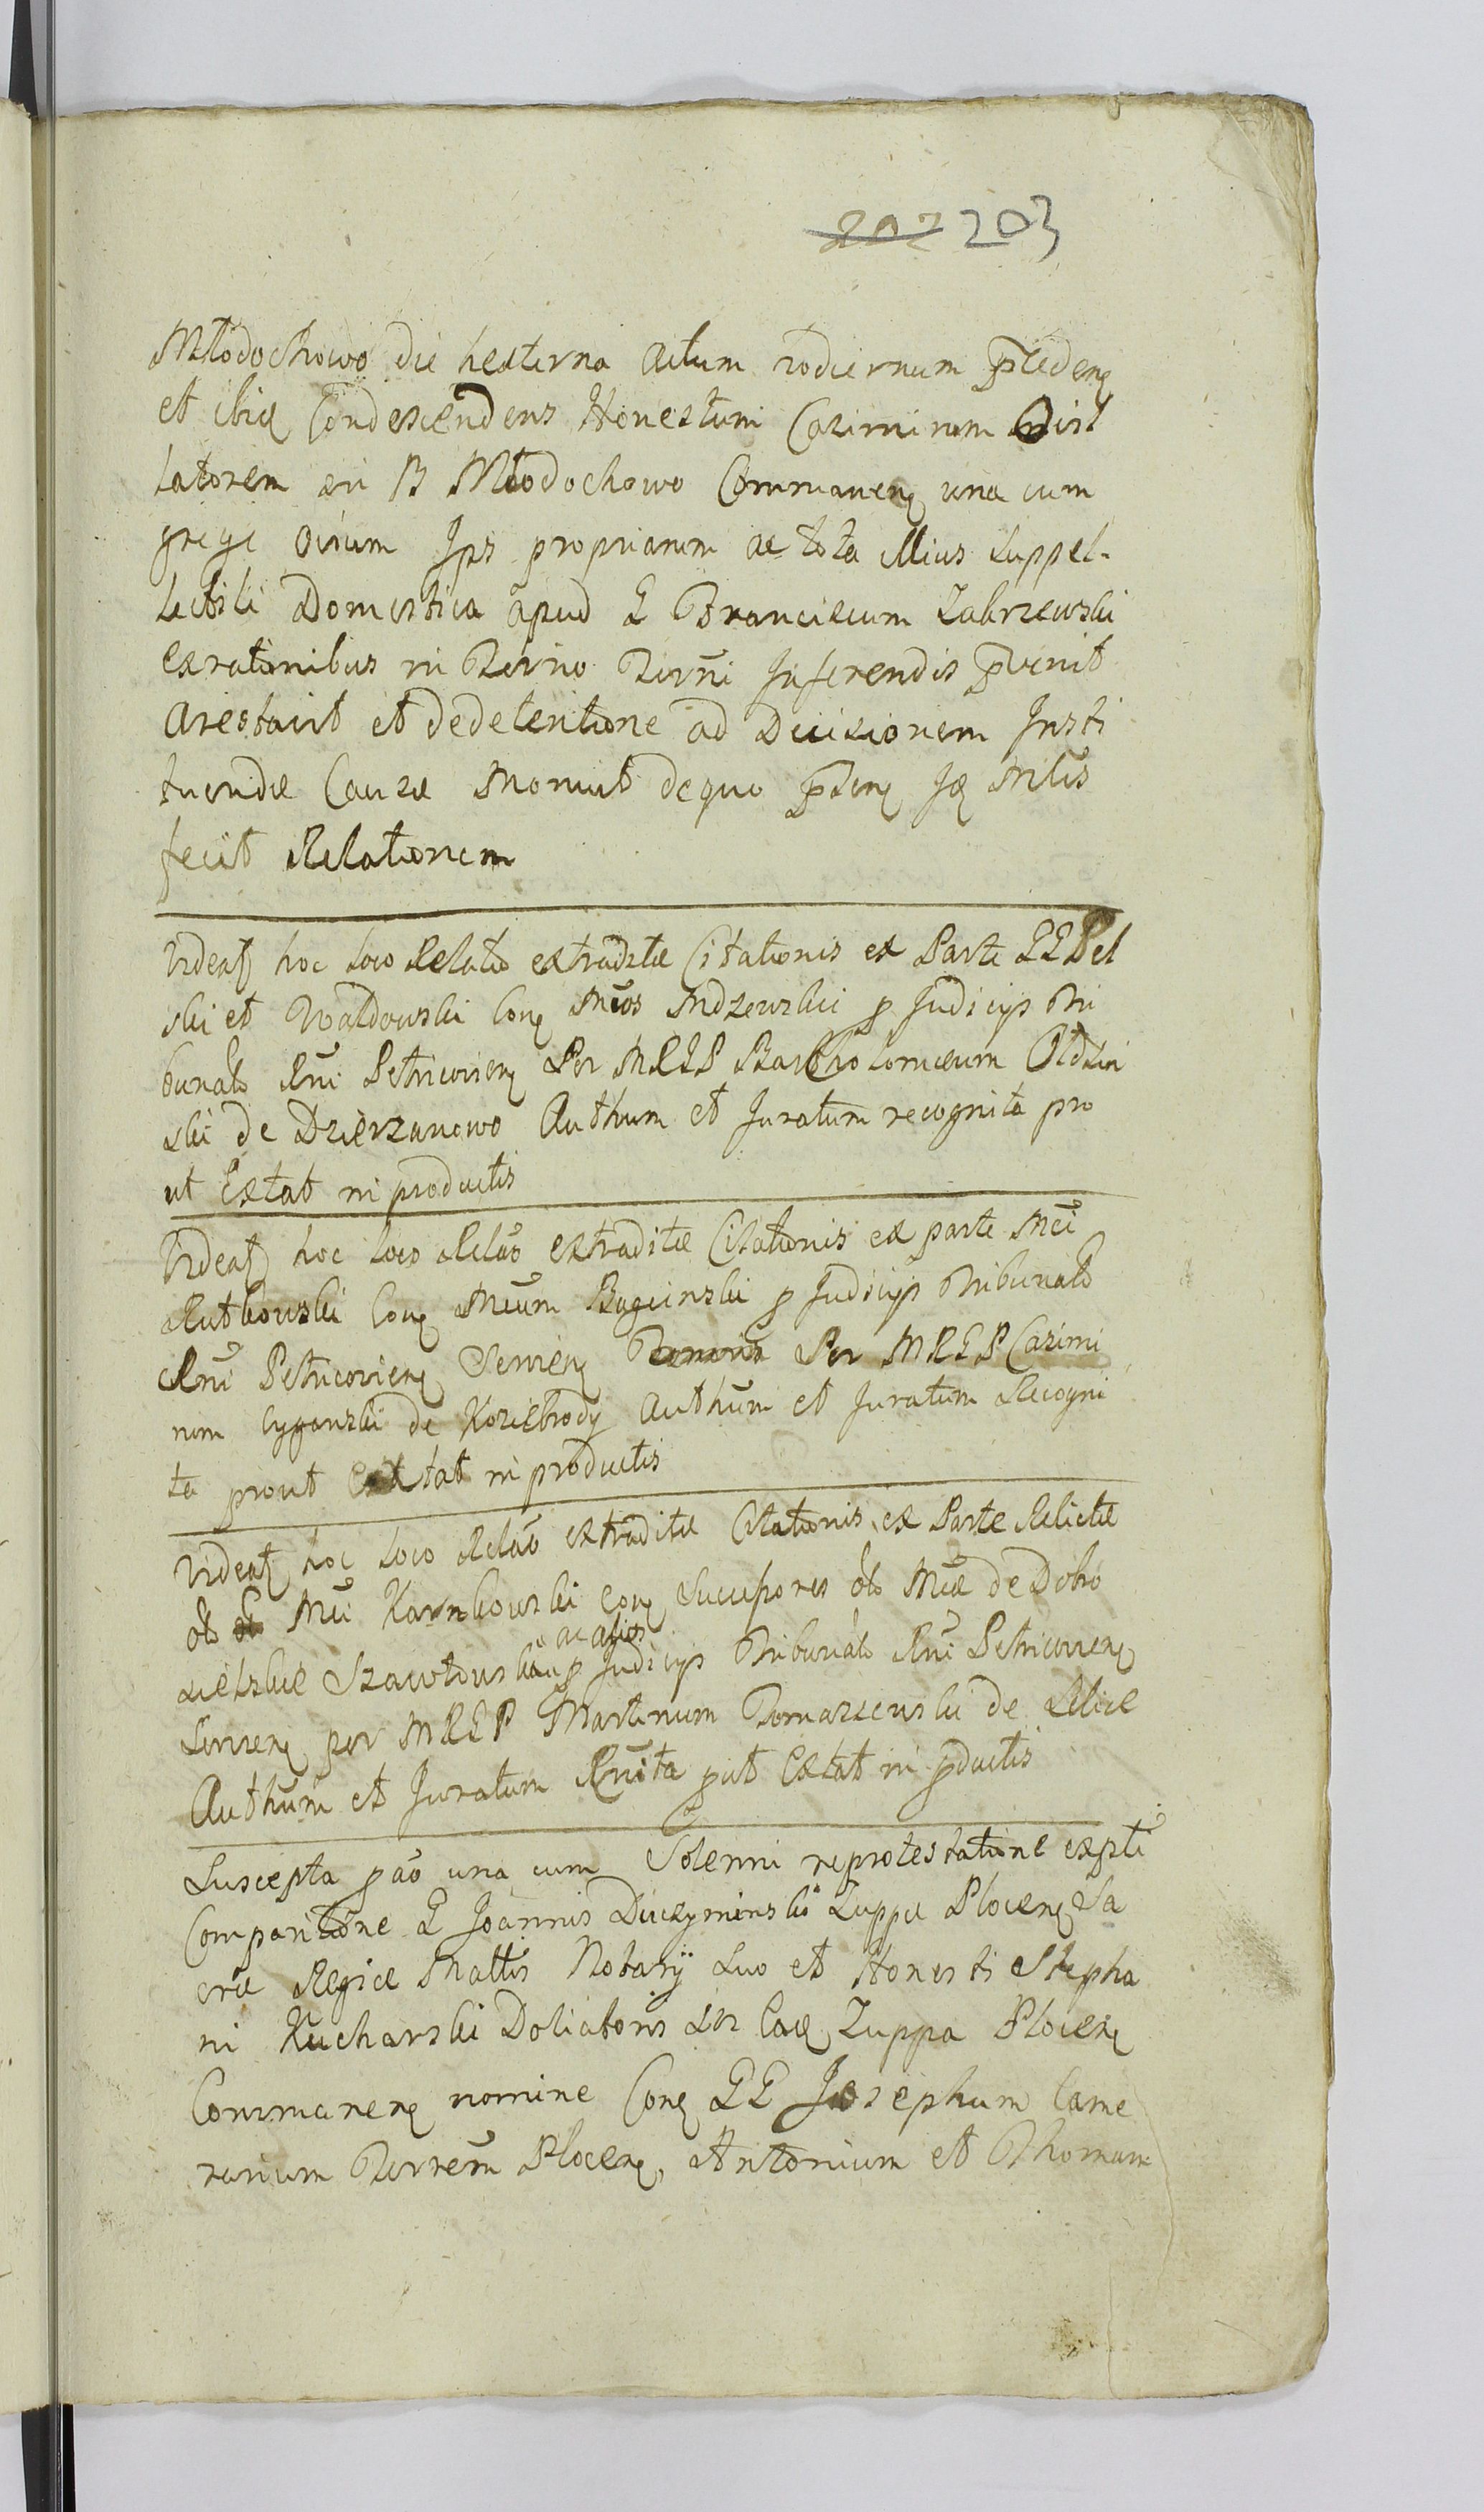 202 203
Młodochowo die hesterna actum hodiernum p̄cedenꝫ
et ibiꝗ Condescendens Honestum Casimirum Dist
latorem in B Młodochowo Commanenꝫ una cum
grege ovium Ips propriarum ac tota illius suppel-
lectili Domestica apud G Franciscum Zabrzewski
exrationibus in Terno Terñi Inferendis p̄venit
Arestavit et dedetentione ad Decisionem Insti
tuendæ Causæ Monuit dequo p̄senꝫ Iꝗ Mtls
fecit Relationem
Videatꝫ hoc loco Relatio extraditæ Citationis ex Parte GG Pel
ski et Wałdowski Conꝫ Mcos Mdzewskii p Judicijs Tri
bunalᵇ Rni Petricovienꝫ Per MRGP Bartholomeum Ołdzin
ski de Dzierzanowo Authum et Juratum recognita pro
ut Extat in productis
Videatꝫ hoc loco Relao extraditæ Citationis ex parte Mci
Rutkowski Conꝫ Mcum Bagienski p Judicijs Tribunalᵇ
Rni Petricovienꝫ Servienꝫ Per MRGP Casimi
rum Cyganski de Koziebrody Authum et Juratum Recogni
ta prout Extat in productis
Videatꝫ hoc loco Relao extraditæ Citationis ex Parte Relictæ
olᵇ Mci Karnkowski Conꝫ Succesores olᵇ Mcæ de Dobro
sielskie Szawłowska ac alios p Judicijs Tribunalᵇ Rni Petricovienꝫ
Servienꝫ per MRGP Martinum Tomaszewski de Selice
Authum et Juratum Rnita put Extat in pductis
Suscepta p ao una cum Solenni reprotestatione expte
Comparitione G Joannis Duczyminski Zuppæ Plocenꝫ Sa
cræ Regiæ Mattis Notarÿ suo et Honesti Stepha
ni Kucharski Doliatoris in Eaꝗ Zuppa Plocenꝫ
Commanenꝫ nomine Conꝫ GG Josephum Came
rarium Terrem̄ Plocenꝫ, Antonium et Thomam